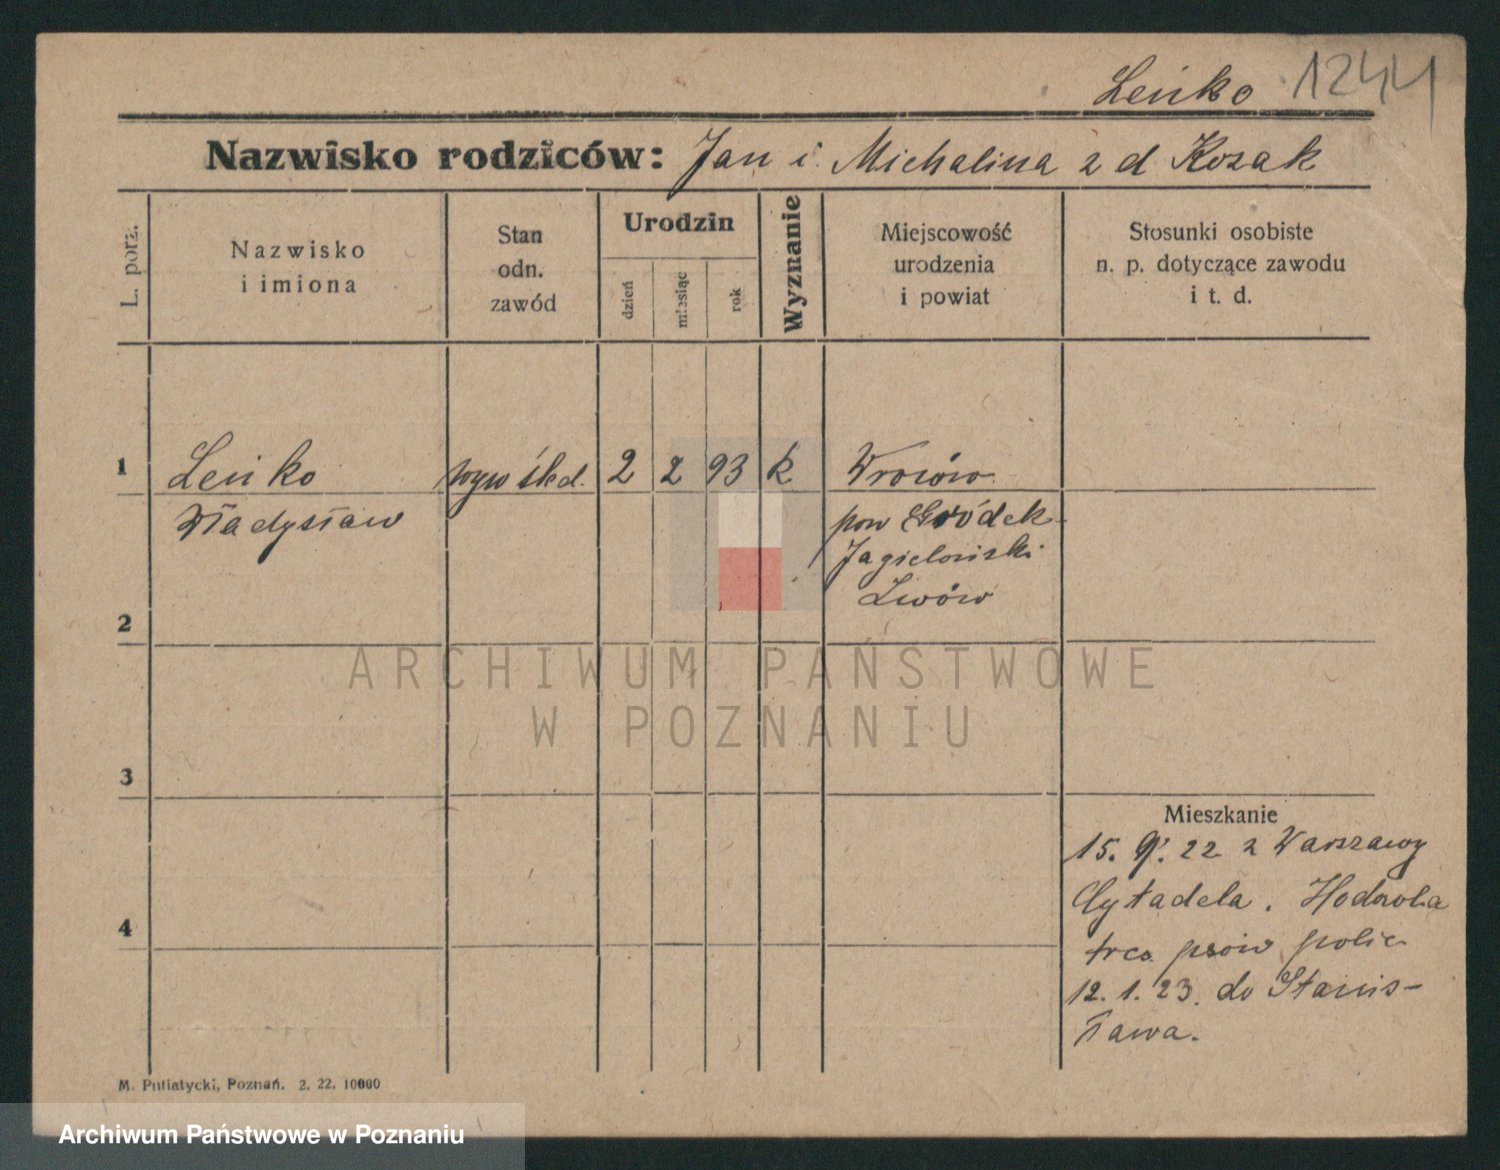 Leńko 1244
Nazwisko rodziców: Jan i Michalina z d Kozak
L. porz.
Nazwisko
i imiona
Stan
odn.
zawód
Urodzin
dzień
miesiąc
rok
Wyznanie
Miejscowość
urodzenia
i powiat
Stosunki osobiste
n. p. dotyczące zawodu
i t. d.
1 Leńko wyw śled. 2 2 93 k Wroców
Władysław pow Gródek
Jagieloński
Lwów
2
3
4
ARCHIWUM PAŃSTWOWE
W POZNANIU
Mieszkanie
15. 9. 22 z Warszawy
Cytadela. Hodowla
tres. psów polic
12. 1. 23. do Stanis-
ława.
M. Putiatycki, Poznań. 2. 22. 10000
Archiwum Państwowe w Poznaniu